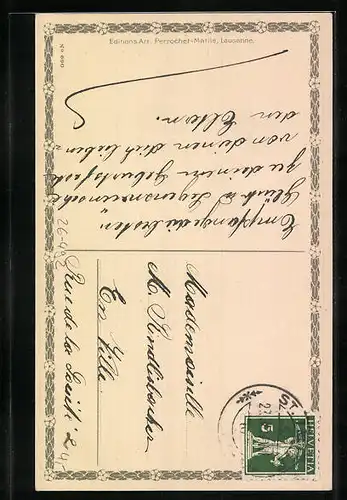 Editions Art. Perrochet-Matile, Lausanne.
No 090
Empfange die besten
Glück u. Segenswünsche
zu deinem Geburtsfest
von deinen dich lieben-
den Eltern.
26-4
Mademoiselle
M.
En Ville
Rue de la
ST.
HELVETIA
5